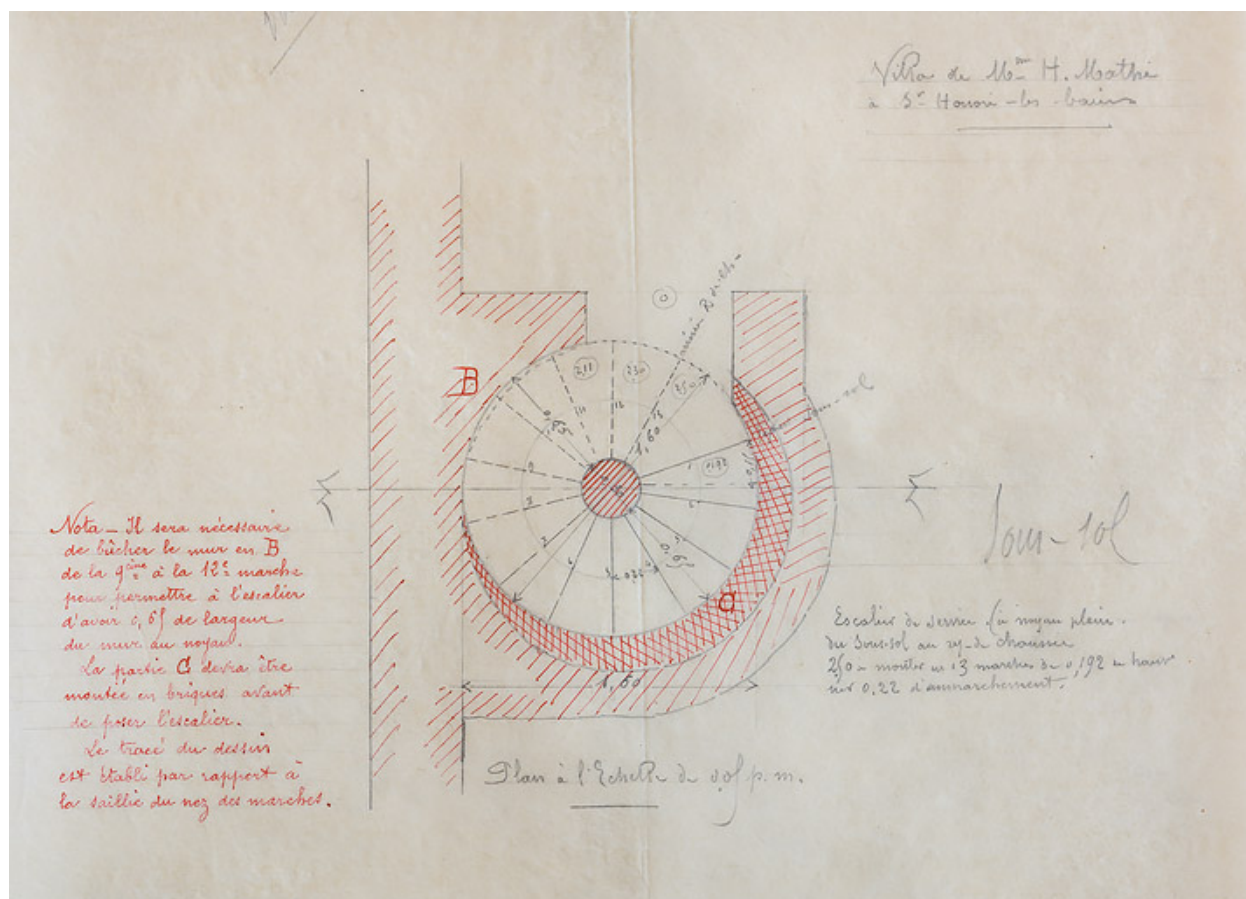 Villa de Mme H. Mathé
à St Honoré-les-bains
B
C
1,60
1,60
0,65
0,65
211
230
250
192
13
12
11
9
8
7
6
Nota _ Il sera nécessaire
de bûcher le mur en B
de la 9ème à la 12e marche
pour permettre à l'escalier
d'avoir 0,65 de largeur
du mur au noyau.
La partie C devra être
montée en briques avant
de poser l'escalier.
Le tracé du dessin
est établi par rapport à
la saillie du nez des marches.
Sous-sol
Escalier de service (à noyau plein.
du Sous-sol au rez-de chaussée
2,50 à monter en 13 marches de 0,192 de haut
sur 0,22 d'emmarchement.
Plan à l'Echelle de 0,05 p. m.